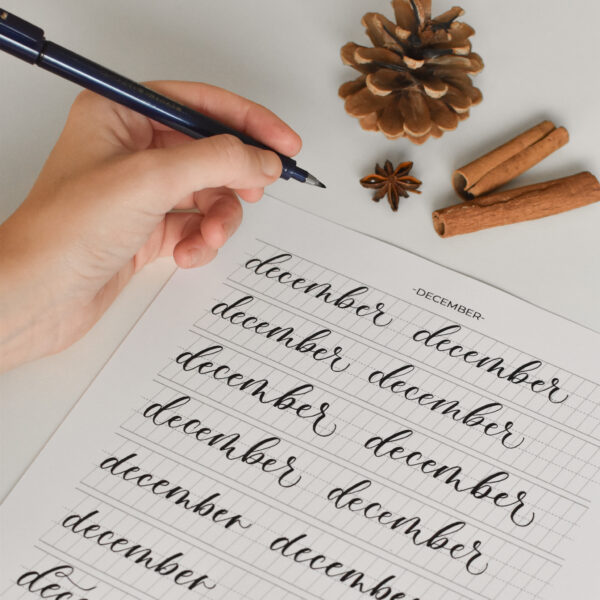 -DECEMBER-
december december
december december
december december
december december
december december
december december
december